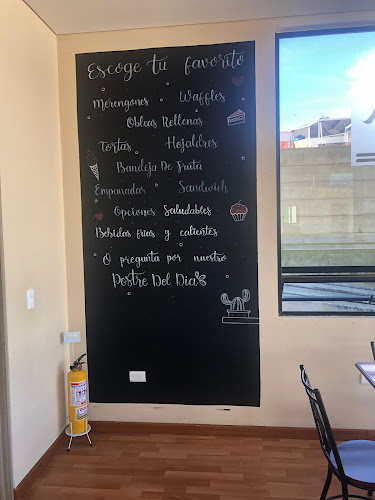 Escoge tu favorito
Merengones Waffles
Obleas Rellenas
Tortas Hojaldres
Bandeja De Fruta
Empanadas Sandwich
Opciones Saludables
Bebidas frias y calientes
O pregunta por nuestro
Postre Del Dia